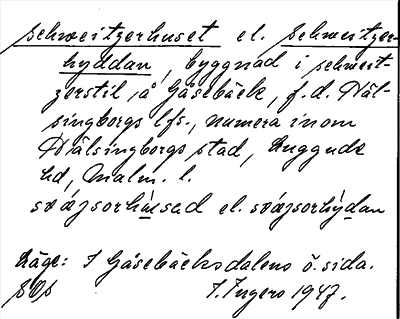 schweitzerhuset el. schweitzer-
hyddan, byggnad i schweit-
zerstil å Gåsebäck, f.d. Häl-
singborgs lfs., numera inom
Hälsingborgs stad, Luggude
hd, Malm. l.
svájsorhùsad el. svájsorhỳdan
Läge: I Gåsebäcksdalens ö. sida.
I. Ingers 1947.